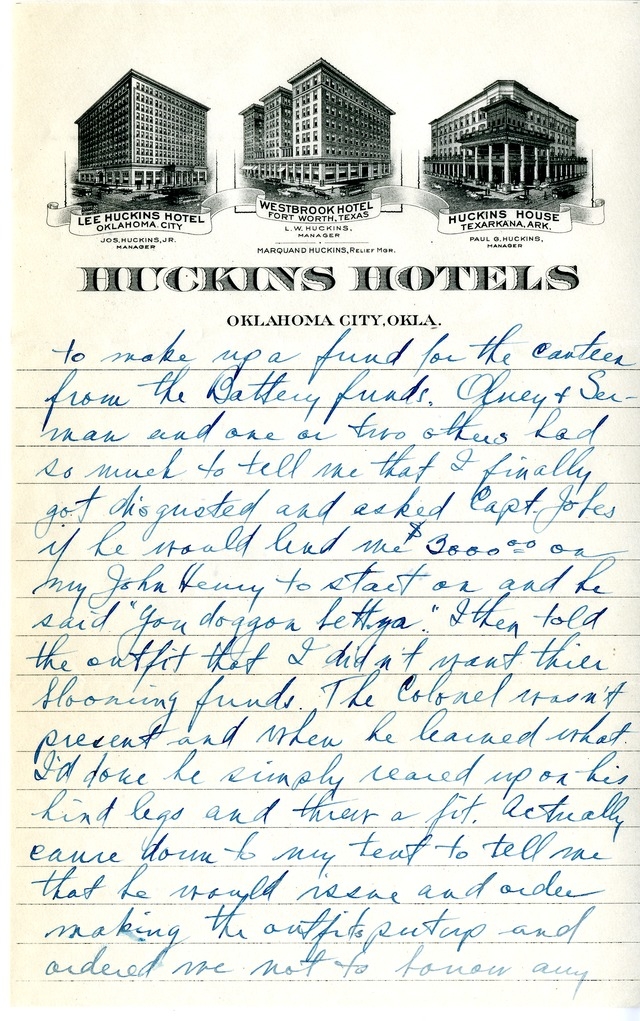 LEE HUCKINS HOTEL
OKLAHOMA CITY
JOS. HUCKINS, JR.
MANAGER
WESTBROOK HOTEL
FORT WORTH, TEXAS
L. W. HUCKINS,
MANAGER
MARQUAND HUCKINS, RELIEF MGR.
HUCKINS HOUSE
TEXARKANA, ARK.
PAUL G. HUCKINS,
MANAGER
HUCKINS HOTELS
OKLAHOMA CITY, OKLA.
to make up a fund for the canteen
from the Battery funds. Olney & Ser-
man and one or two others had
so much to tell me that I finally
got disgusted and asked Capt. Jobes
if he would lend me $3000.00 on
my John Henry to start on and he
said "You doggon bettya." I then told
the outfit that I didn't want thier
blooming funds. The Colonel wasn't
present and when he learned what
I'd done he simply reared up on his
hind legs and threw a fit. Actually
came down to my tent to tell me
that he would issue and order
making the outfits put up and
ordered me not to borrow any